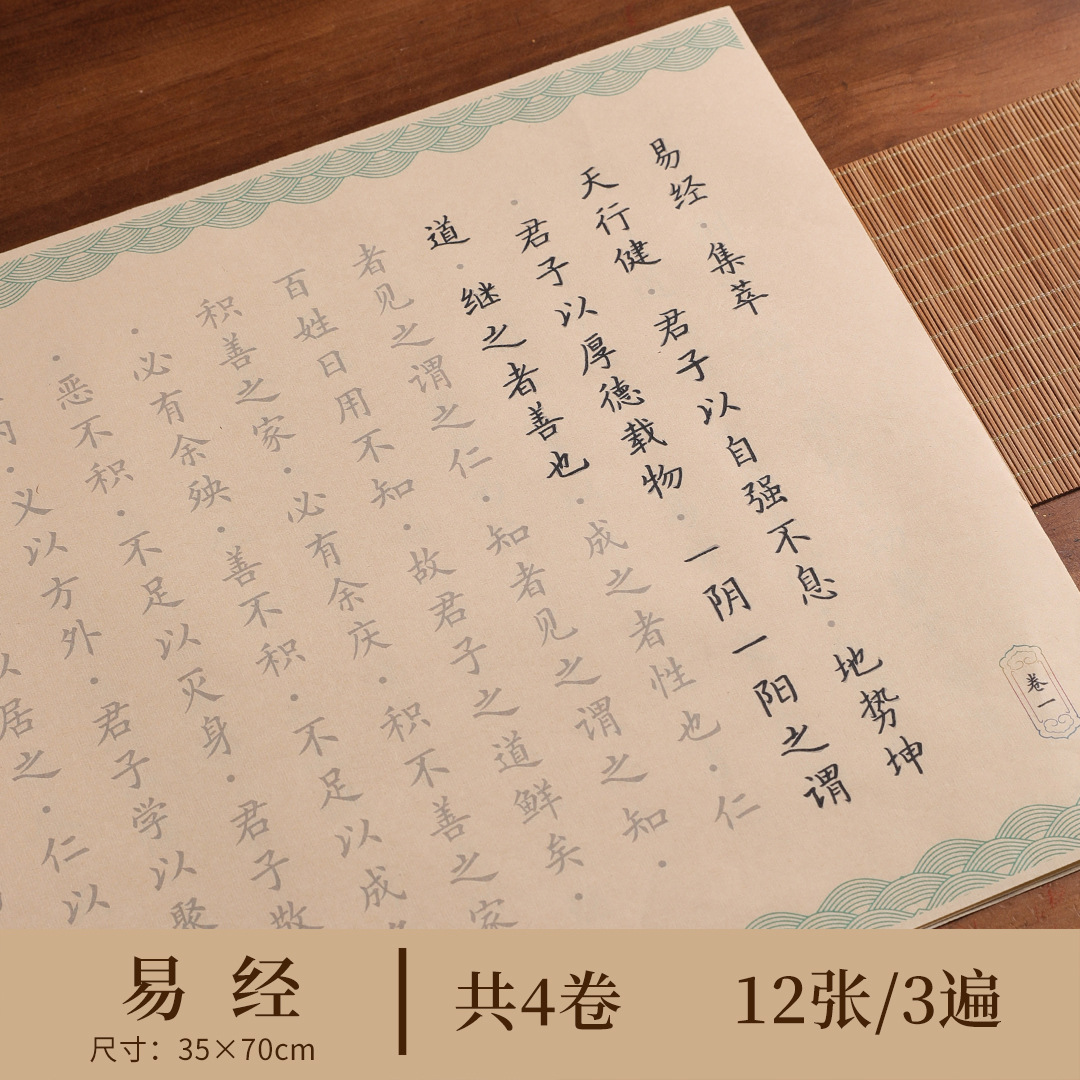 易经·集萃
天行健·君子以自强不息·地势坤
·君子以厚德载物·一阴一阳之谓
道·继之者善也·成之者性也·仁
者见之谓之仁·知者见之谓之知·
百姓日用不知·故君子之道鲜矣·
积善之家·必有余庆·积不善之家
·必有余殃·善不积·不足以成
·恶不积·不足以灭身·君子敬
·义以方外·君子学以聚
以居之·仁以
卷一
易经
尺寸：35×70cm
共4卷
12张/3遍